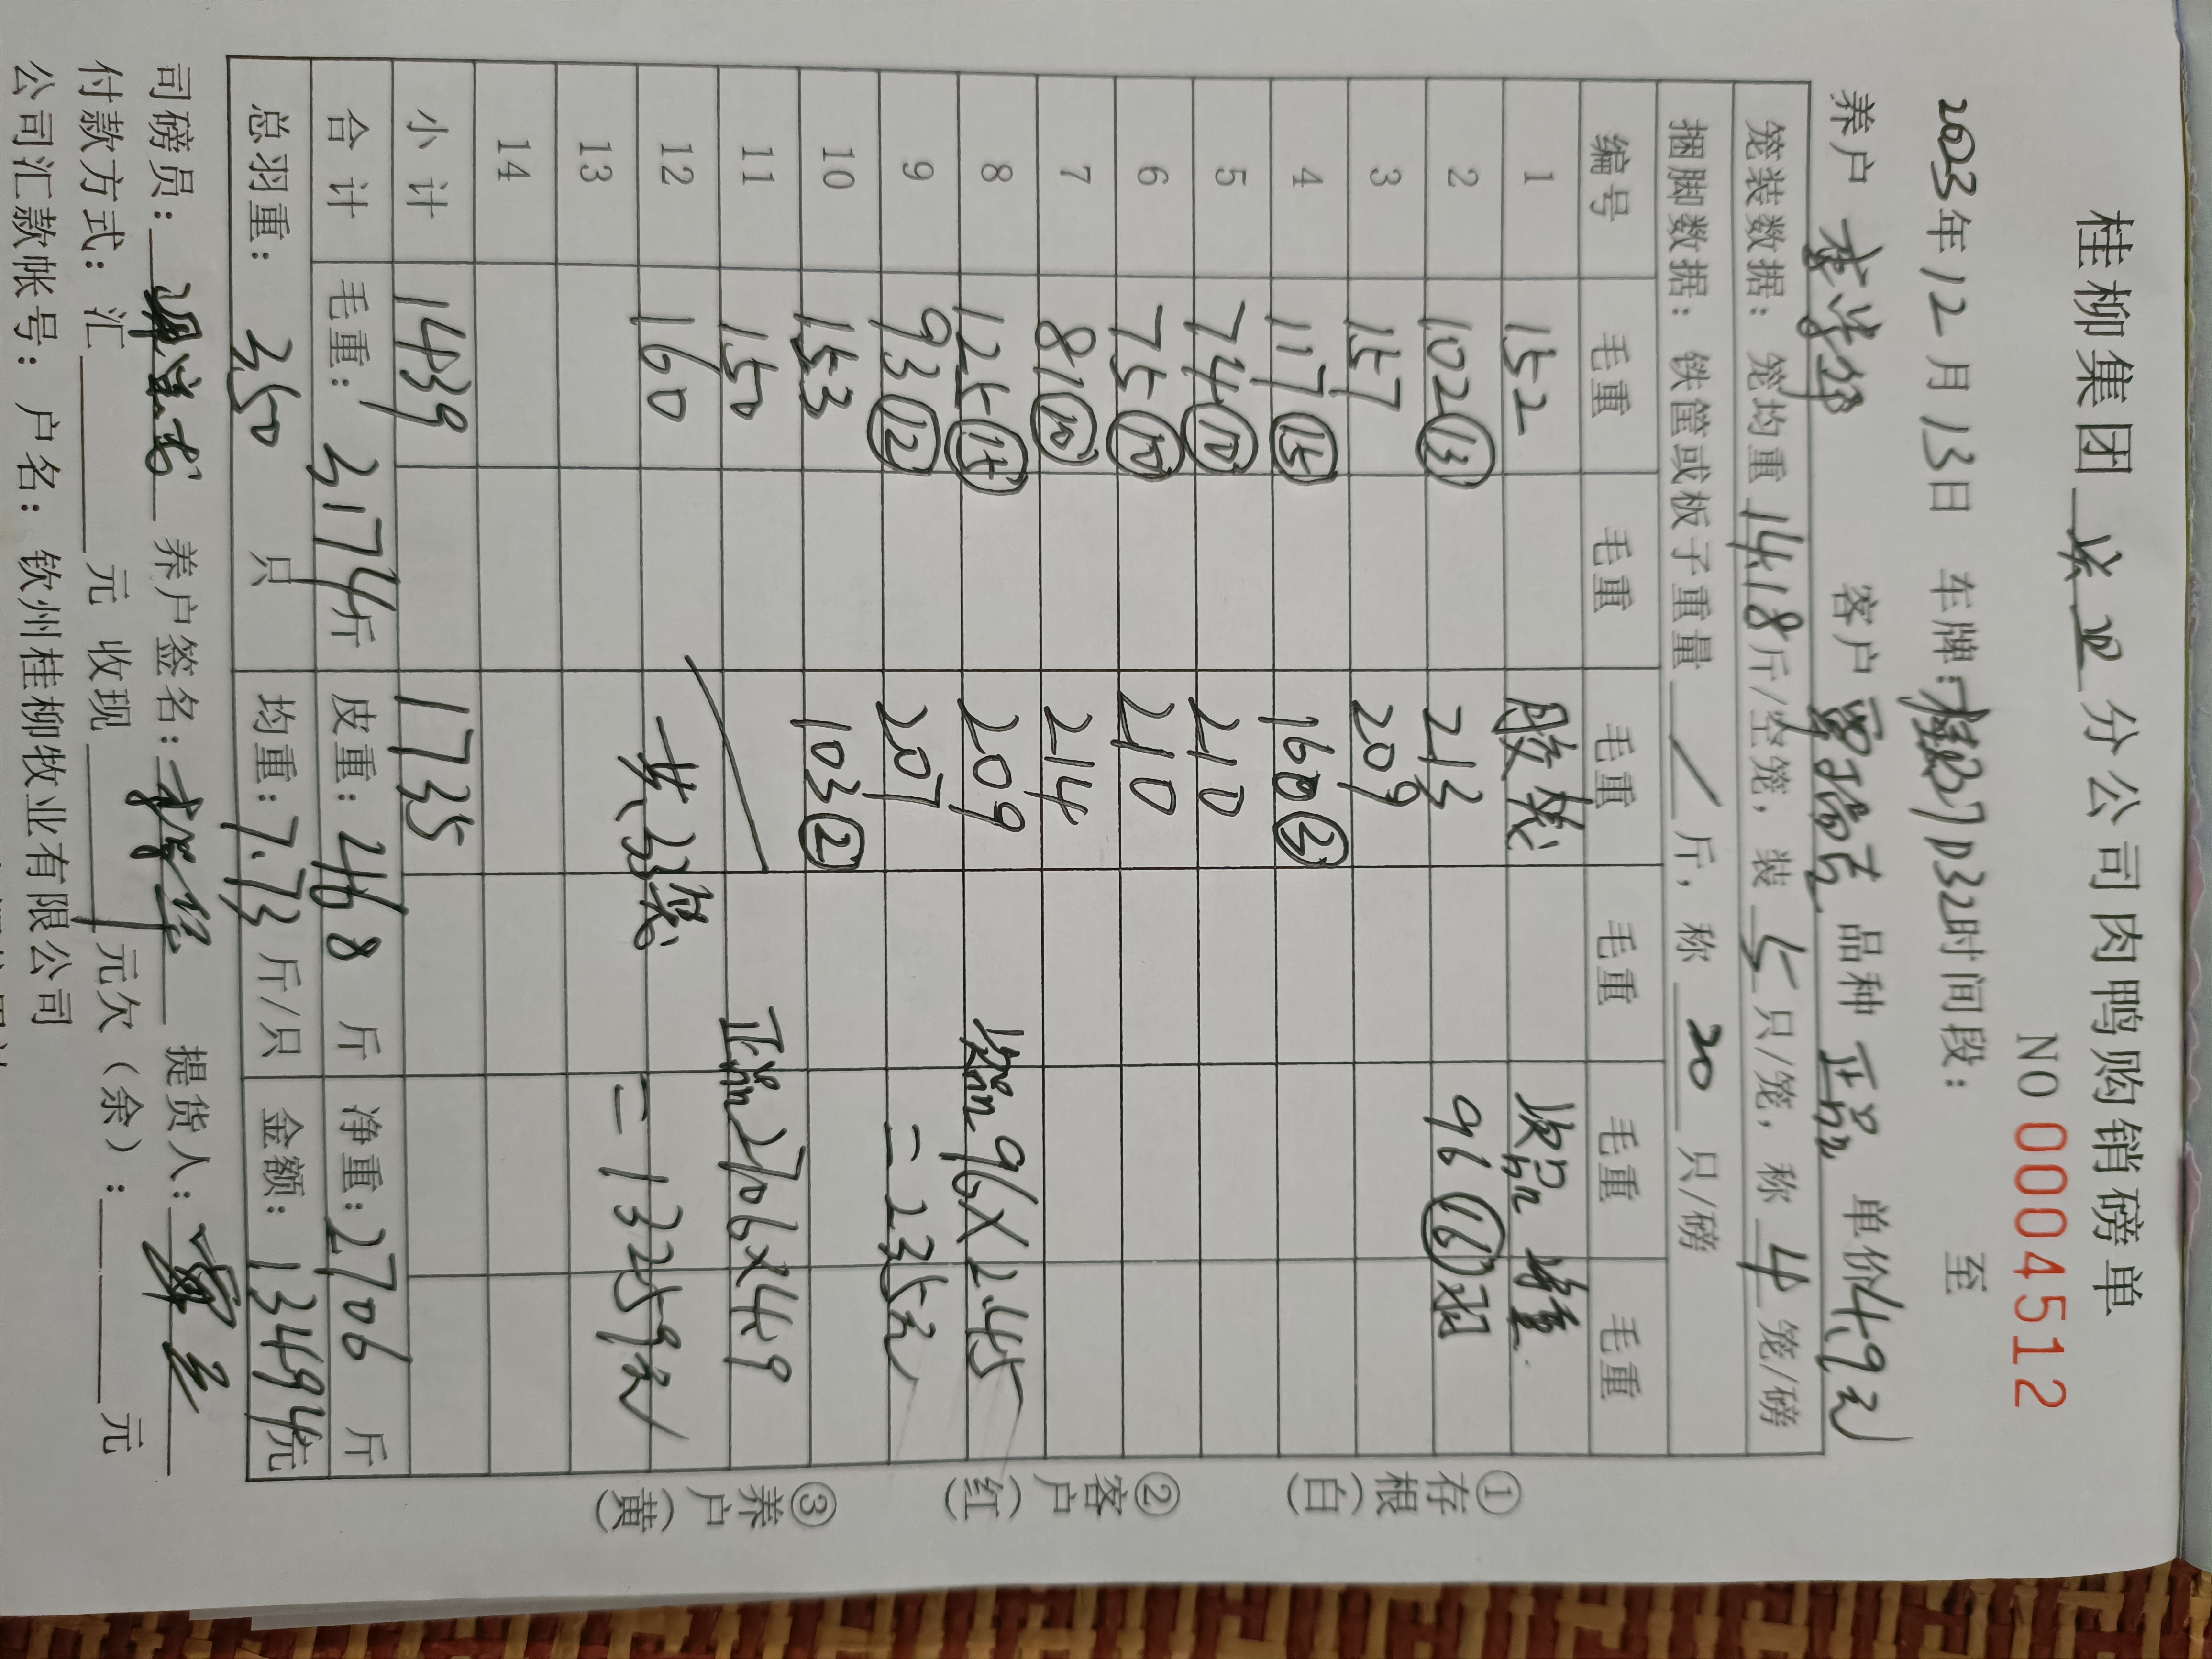 桂柳集团 分公司肉鸭购销磅单
NO 0004512
2023年12月13日 车牌:桂 7D32时间段: 至
养户 李 华 客户 覃瑞吉 品种 正品 单价4.9元
笼装数据: 笼均重 14.18斤/空笼, 装 5 只/笼, 称 4 笼/磅
捆脚数据: 铁筐或板子重量 / 斤, 称 20 只/磅
编号 毛重 毛重 毛重 毛重 毛重 毛重
1 152 胶笼 次品
2 102⑬ 213 96⑯羽
3 157 209
4 117⑮ 160③
5 74⑩ 210
6 75⑩ 210
7 81⑩ 214
8 125 209 次品96×2.45
9 93⑫ 207 =235元
10 153 103②
11 150 正品2706×4.9
12 160 共33笼 =13259元
13
14
小计 1439 1735
合计 毛重: 3174斤 皮重: 468 斤 净重: 2706 斤
总羽重: 350 只 均重: 7.73 斤/只 金额: 13494元
司磅员: 养户签名: 李 华 提货人: 覃
付款方式: 汇 元 收现 元欠(余): 元
公司汇款帐号: 户名: 钦州桂柳牧业有限公司
①存根(白)
②客户(红)
③养户(黄)